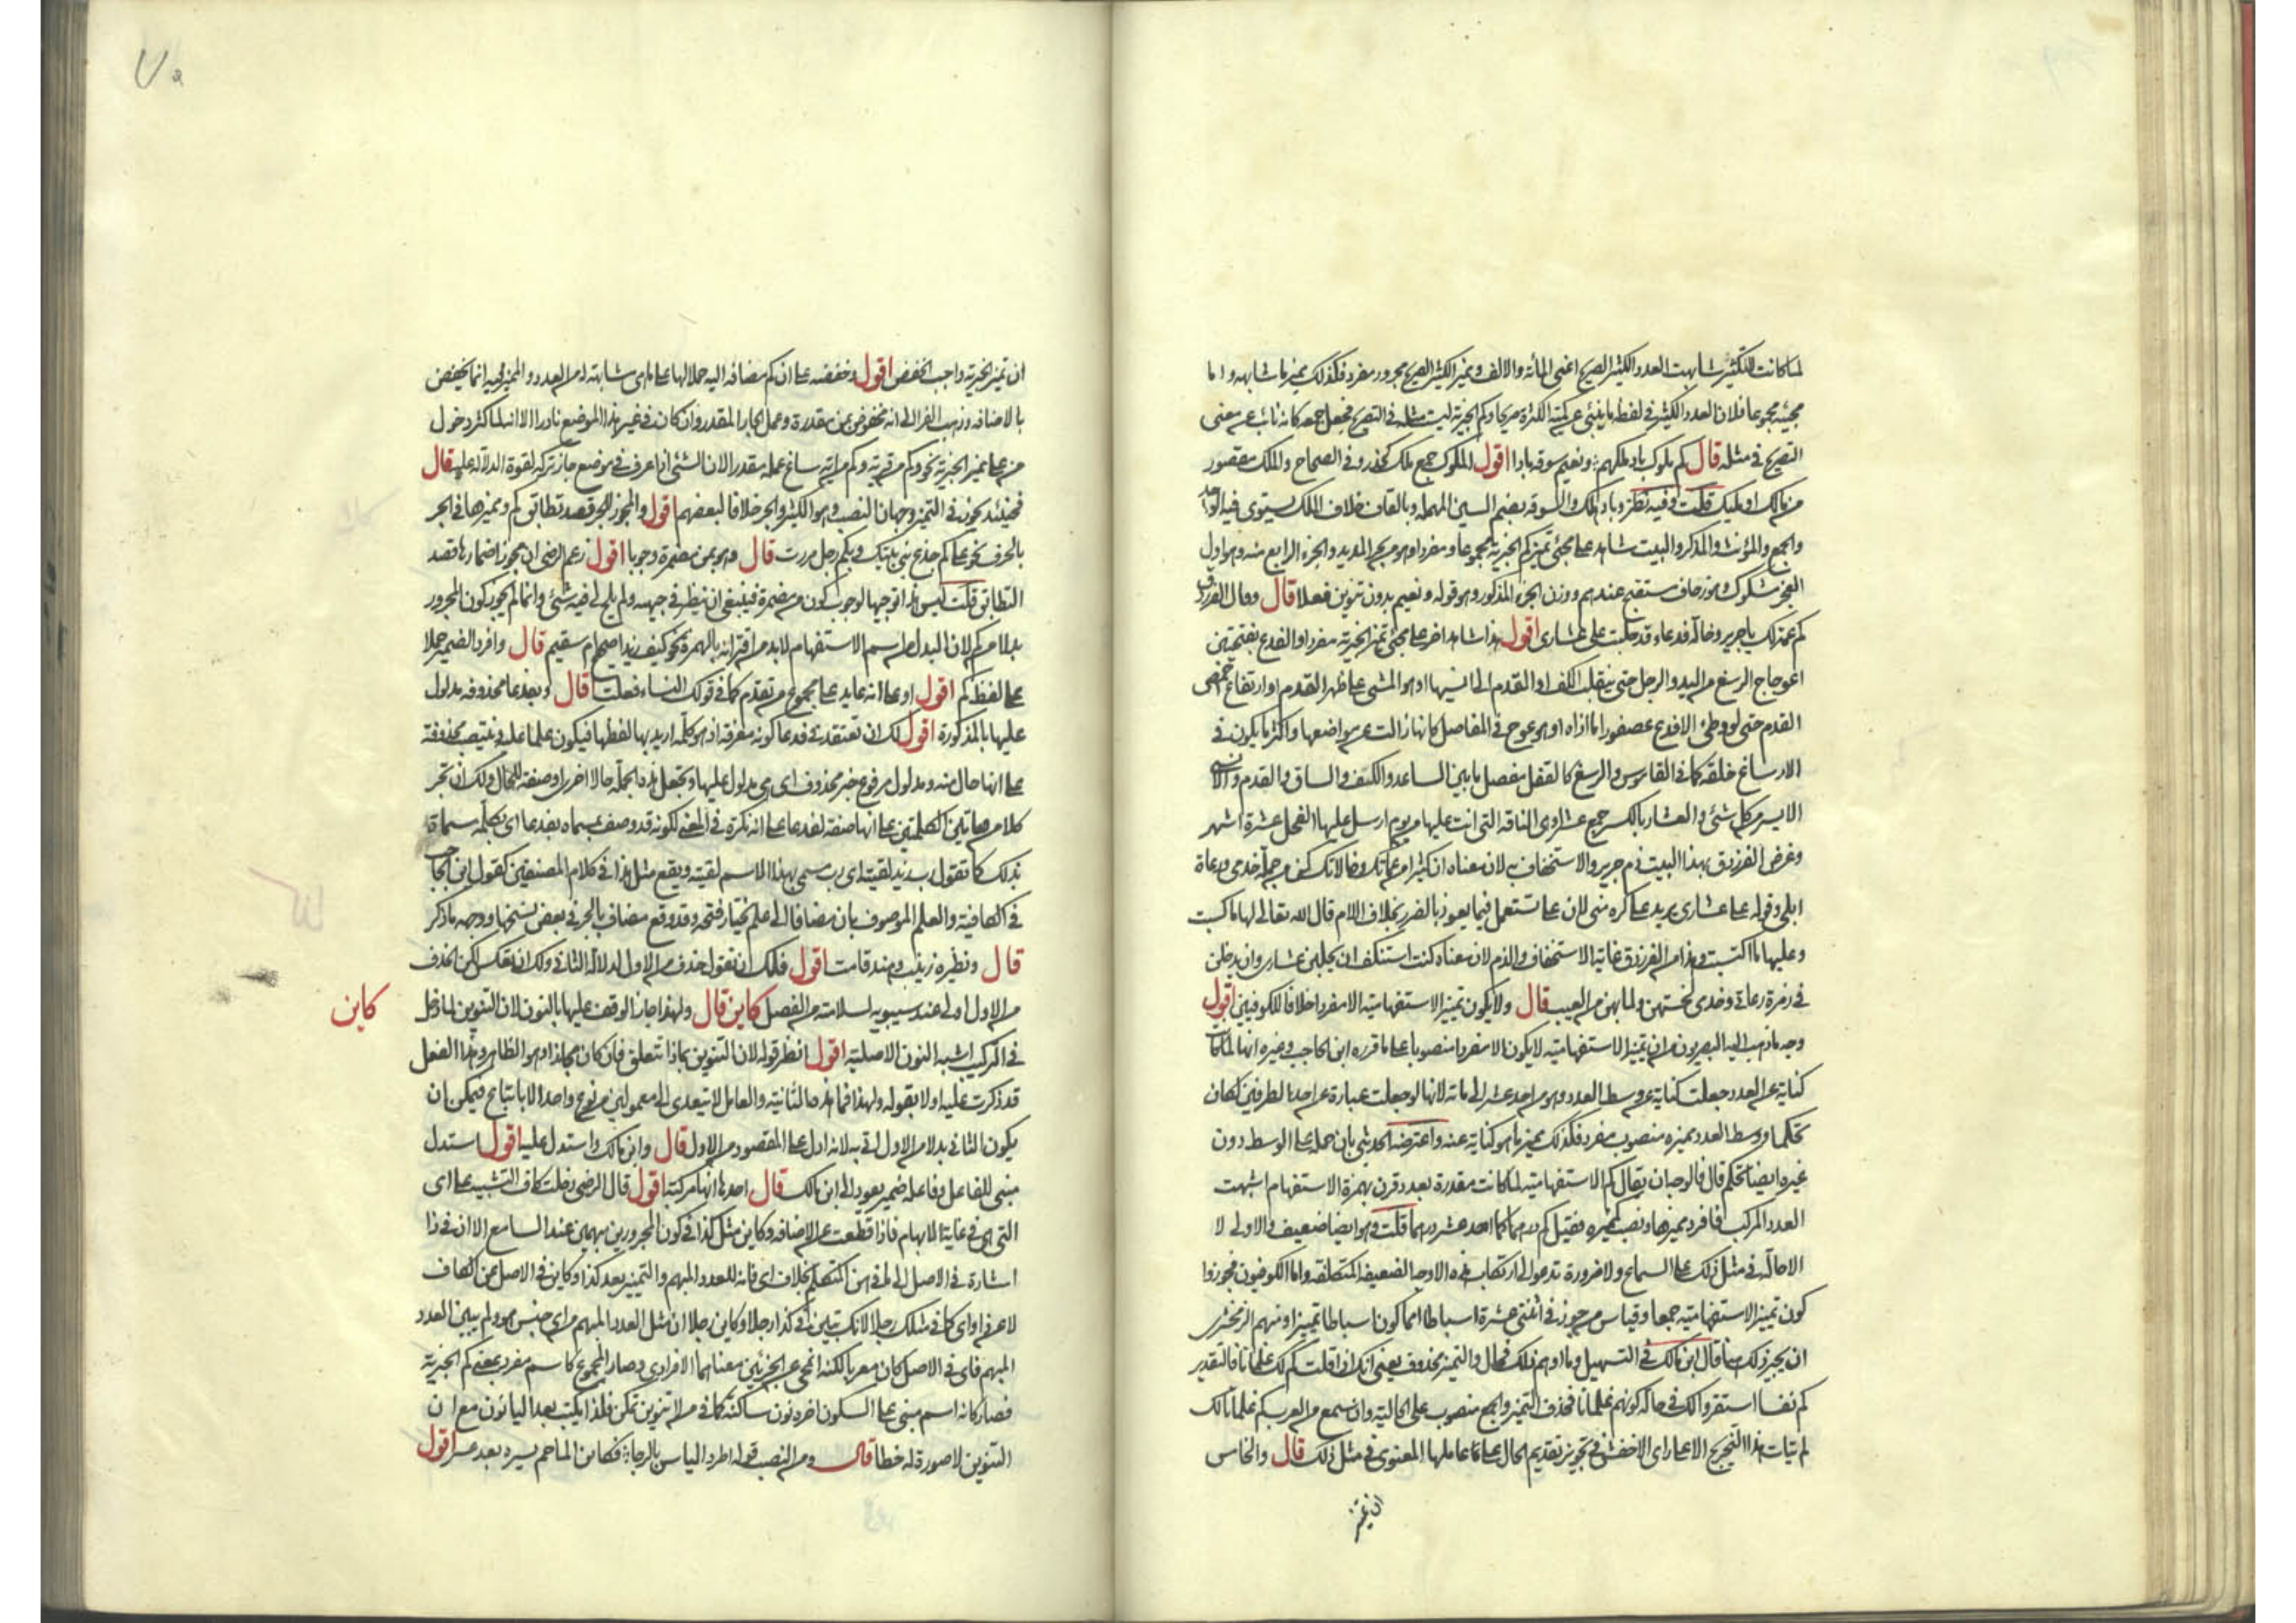 لما كانت للتكثير شابهت العدد الكثير الصريح اعنى المأته والالف ومميز الكثير الصريح مجرور مفرد فكذلك مميز ما شابهه واما
مجيئه مجموعا فلان العدد الكثير فى لفظه ما ينبئ عن كمية الكثرة صريحا وكم الخبرية ليست مثله فى التصريح فجعل جمعه كانه نائب عن معنى
التصريح فى مثله قال كم ملوك باد ملكهم ونعيم سوقه بادا اقول الملوك جمع ملك كحذر وفى الصحاح والملك مقصور
من مالك او مليك قلت وفيه نظر وباد هلك والسوقه بضم السين المهمله وبالقاف خلاف الملك يستوى فيه الواحد
والجمع والمؤنث والمذكر والبيت شاهد على مجئ تمييز كم الخبرية مجموعا ومفردا وهو من بحر المديد والجزء الرابع منه وهو اول
العجز مشكول وهو زحاف مستقبح عندهم ووزن الجزء المذكور وهو قوله ونعيم بدون تنوين فعلات قال وقال الفرزدق
كم عمة لك يا جرير وخالة فدعاء قد حلبت على عشارى اقول هذا شاهد اخر على مجئ تمييز الخبرية مفردا والفدع بفتحتين
اعوجاج الرسغ من اليد والرجل حتى ينقلب الكف او القدم الى انسيها او هو المشى على ظهر القدم او ارتفاع اخمص
القدم حتى لو وطئ الافدع عصفورا ما اذاه او هو عوج فى المفاصل كانها زالت عن مواضعها واكثر ما يكون فى
الارساغ خلقه كما فى القاموس والرسغ كالقفل مفصل ما بين الساعد والكف والساق والقدم والانسى
الايسر من كل شئ والعشار بالكسر جمع عشراء وهى الناقه التى اتت عليها من يوم ارسل عليها الفحل عشرة اشهر
وغرض الفرزدق بهذا البيت ذم جرير والاستخفاف به لان معناه ان كثيرا من عماتك وخالاتك كن من جملة خدمى ورعاة
ابلى وقوله على عشارى يريد على كره منى لان على تستعمل فيما يعود بالضرر بخلاف اللام قال الله تعالى لها ما كسبت
وعليها ما اكتسبت وهذا من الفرزدق غاية الاستخفاف والذم لان معناه كنت استنكف ان يحلبن عشارى وان يدخلن
فى زمرة رعاتى وخدمى لخستهن ولما بهن من العيب قال ولا يكون تمييز الاستفهامية الا مفردا خلافا للكوفيين اقول
وجه ما ذهب اليه البصريون من ان تمييز الاستفهامية لا يكون الا مفردا منصوبا على ما قرره ابن الحاجب وغيره انها لما كانت
كناية عن العدد جعلت كناية عن وسط العدد وهو من احد عشر الى مائة لانها لو جعلت عبارة عن احد الطرفين لكان
تحكما ووسط العدد مميزه منصوب مفرد فكذلك مميز ما هو كناية عنه واعترضه الحديثى بان حمله على الوسط دون
غيره ايضا تحكم قال فالوجه ان يقال كم الاستفهامية لما كانت مقدرة بعدد قرن بهمزة الاستفهام اشبهت
العدد المركب فافرد مميزها ونصب كمميزه فقيل كم درهما كما احد عشر درهما قلت وهو ايضا ضعيف والاولى لا
الاحالة فى مثل ذلك على السماع ولا ضرورة تدعو الى ارتكاب هذه الاوجه الضعيفة المتكلفة واما الكوفيون فجوزوا
كون تمييز الاستفهامية جمعا وقياس من جوز فى اثنتى عشرة اسباطا امما كون اسباطا تمييزا ومنهم الزمخشرى
ان يجيز ذلك هنا قال ابن مالك فى التسهيل وما اوهم ذلك فحال والتمييز محذوف يعنى انك اذا قلت كم لك غلمانا فالتقدير
كم نفسا استقروا لك فى حالة كونهم غلمانا فحذف التمييز والجمع منصوب على الحالية وان سمع من العرب كم غلمانا لك
لم يتات هذا التخريج الا على راى الاخفش فى تجويز تقديم الحال على عاملها المعنوى فى مثل ذلك قال والخامس
ان تمييز
ان تمييز الخبرية واجب الخفض اقول وخفضه على ان كم مضافه اليه حملا لها على ما هى مشابهته له من العدد والمميز فيه انما يخفض
بالاضافه وذهب الفرا الى انه مخفوض بمن مقدرة وعمل الجار المقدر وان كان فى غير هذا الموضع نادرا الا انه لما كثر دخول
من على مميز الخبرية نحو وكم من قرية وكم من اية ساغ عمله مقدرا لان الشئ اذا عرف فى موضع جاز تركه لقوة الدلالة عليه قال
فحينئذ يجوز فى التمييز وجهان النصب وهو الكثير والجر خلافا لبعضهم اقول والمجوز للجر قصد تطابق كم ومميزها فى الجر
بالحرف نحو على كم جذع بنى بيتك وبكم رجل مررت قال وهو بمن مضمرة وجوبا اقول زعم الرضى ان مجوز اضمارها قصد
التطابق قلت ليس هذا توجيها لوجوب كون من مضمرة فينبغى ان ينظر فى جهته ولم يلح لى فيه شئ وانما لم يجوز كون المجرور
بدلا من كم لان البدل من اسم الاستفهام لابد من اقترانه بالهمزة نحو كيف زيد اصحيح ام سقيم قال وافرد الضمير حملا
على لفظ كم اقول او على انه عايد على مجموع من تقدم كما فى قولك النساء فعلت قال وبفدعا محذوفه مدلول
عليها بالمذكورة اقول لك ان تعتقد فى فدعا كونه معرفة اذ هو كلمة اريد بها لفظها فيكون علما عليه وتنتصب محذوفة
على انها حال منه ومدلول مرفوع خبر محذوف اى هى مدلول عليها وتجعل هذه الجملة حالا اخرى او صفة للحال ولك ان تجر
كلا من هاتين الكلمتين على انها صفة لفدعا على انه نكرة فى المعنى لكونه قد وصف بمسماه بفدعا اى بكلمه مسماة
بذلك كما تقول رب زيد لقيته اى رب مسمى بهذا الاسم لقيته ويقع مثل هذا فى كلام المصنفين كقول ابن الحاجب
فى الكافية والعلم الموصوف بابن مضافا الى علم يختار فتحه وقد وقع مضاف بالجر فى بعض نسخها ووجهه ما ذكر
قال ونظيره زينب وهند قامت اقول فلك ان تقول حذف من الاول لدلالة الثانى ولك ان تعكس لكن الحذف
من الاول اولى عند سيبويه لسلامته من الفصل كاين قال ولهذا جاز الوقف عليها بالنون لان التنوين لما دخل
كاين
فى التركيب اشبه النون الاصلية اقول انظر قوله لان التنوين بماذا تتعلق فان كان بجاز اذ هو الظاهر وهذا الفعل
قد ذكرت عليه اولا بقوله ولهذا فما هذه الثانية والعامل لا يتعدى الى معمولين من نوع واحد الا باتباع فيمكن ان
يكون الثانى بدلا من الاول اتى به لانه ادل على المقصود من الاول قال وابن مالك واستدل عليه اقول استدل
مبنى للفاعل وفاعله ضمير يعود الى ابن مالك قال احدها انها مركبة اقول قال الرضى دخلت كاف التشبيه على اى
التى هى فى غاية الابهام فاذا قطعت عن الاضافه وكاين مثل كذا فى كون المجرورين مبهمين عند السامع الا ان فى ذا
اشارة فى الاصل الى ما فى ذهن المتكلم بخلاف اى فانه للعدد المبهم والتمييز بعد كذا وكاين فى الاصل عن الكاف
لا عن ذا واى كما فى مثلك رجلا لانك تبين فى كذا رجلا وكاين رجلا ان مثل العدد المبهم من اى جنس هو ولم يبين العدد
المبهم فاى فى الاصل كان معربا لكنه انمحى عن الجزئين معناهما الافرادى وصار المجموع كاسم مفرد بمعنى كم الخبرية
فصار كانه اسم مبنى على السكون اخره نون ساكنة كما فى من لا تنوين تمكن فلذا يكتب بعد اليا نون مع ان
التنوين لا صورة له خطا قال ومن النصب قوله اطرد الياس بالرجا فكاين الما حم يسره بعد عسر اقول